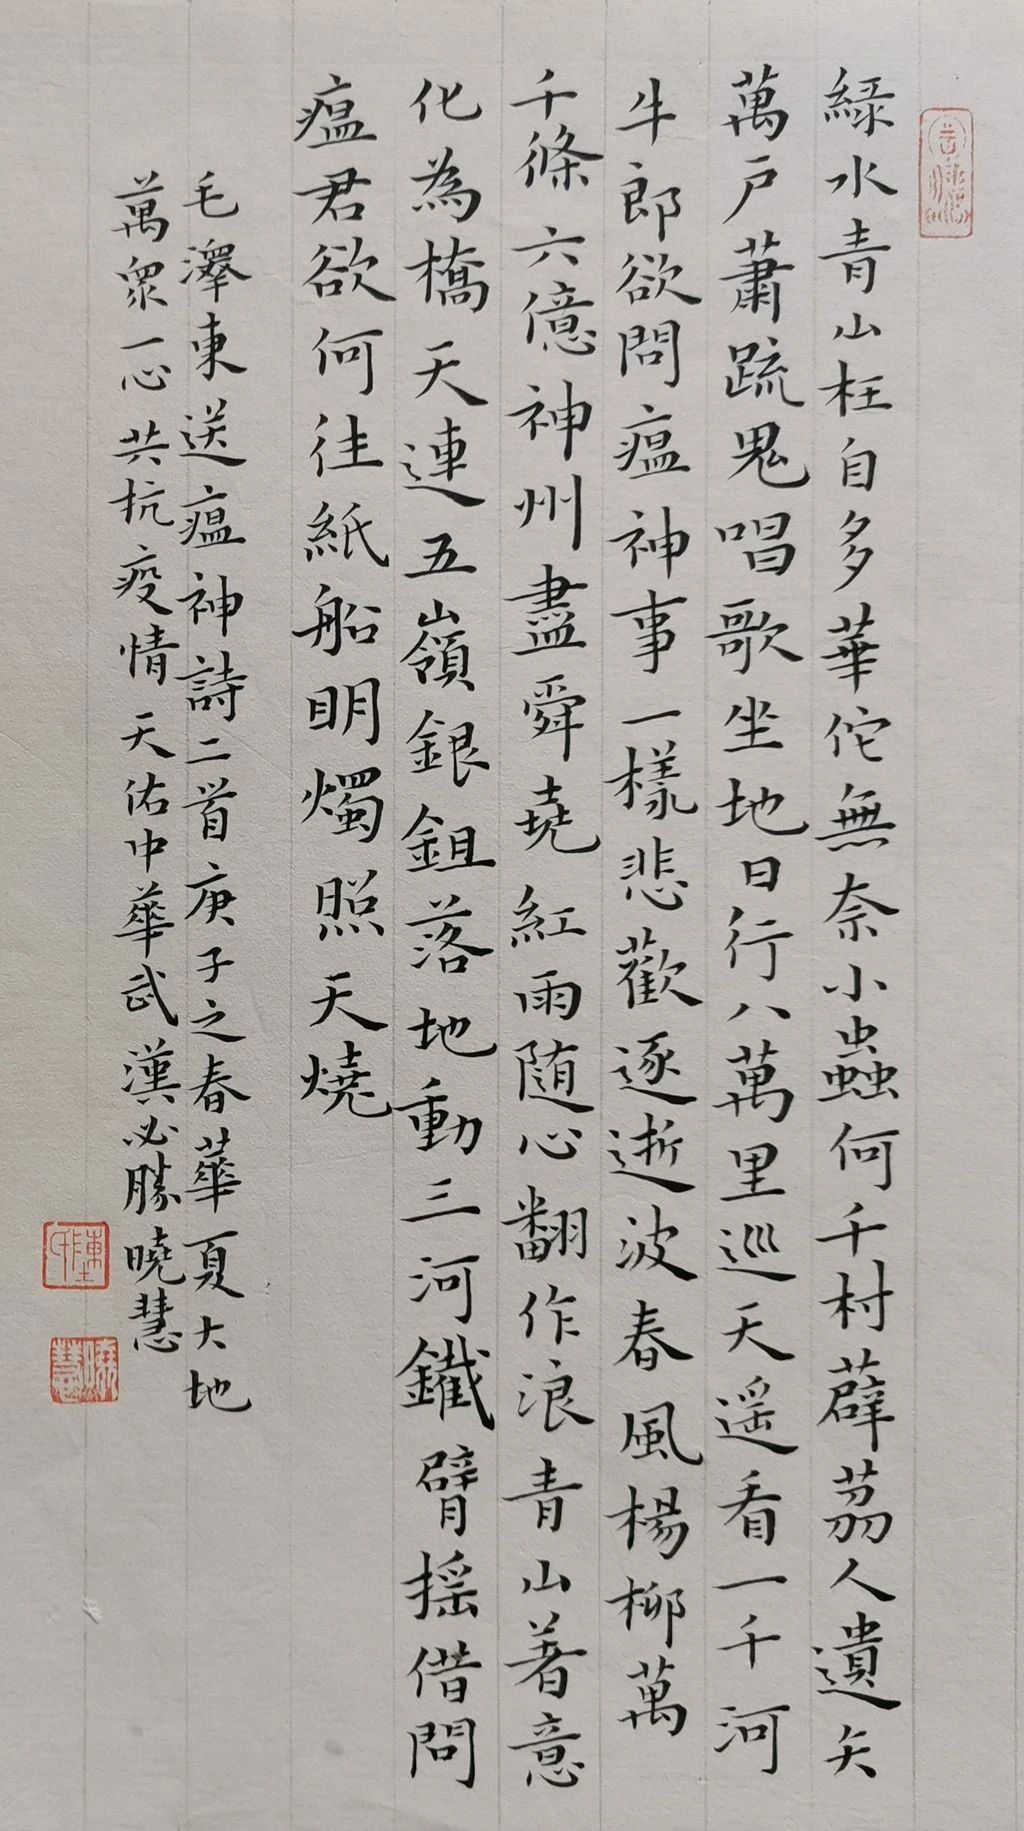 綠水青山枉自多華佗無奈小蟲何千村薜荔人遺矢
萬戶蕭疏鬼唱歌坐地日行八萬里巡天遥看一千河
牛郎欲問瘟神事一樣悲歡逐逝波春風楊柳萬
千條六億神州盡舜堯紅雨随心翻作浪青山著意
化為橋天連五嶺銀鉏落地動三河鐵臂摇借問
瘟君欲何往紙船明燭照天燒
毛澤東送瘟神詩二首庚子之春華夏大地
萬眾一心共抗疫情天佑中華武漢必勝曉慧
曉慧